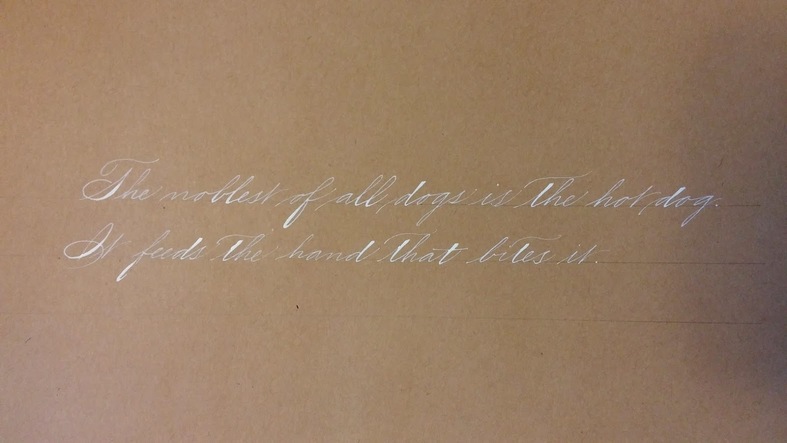 The noblest of all dogs is the hot dog.
It feeds the hand that bites it.